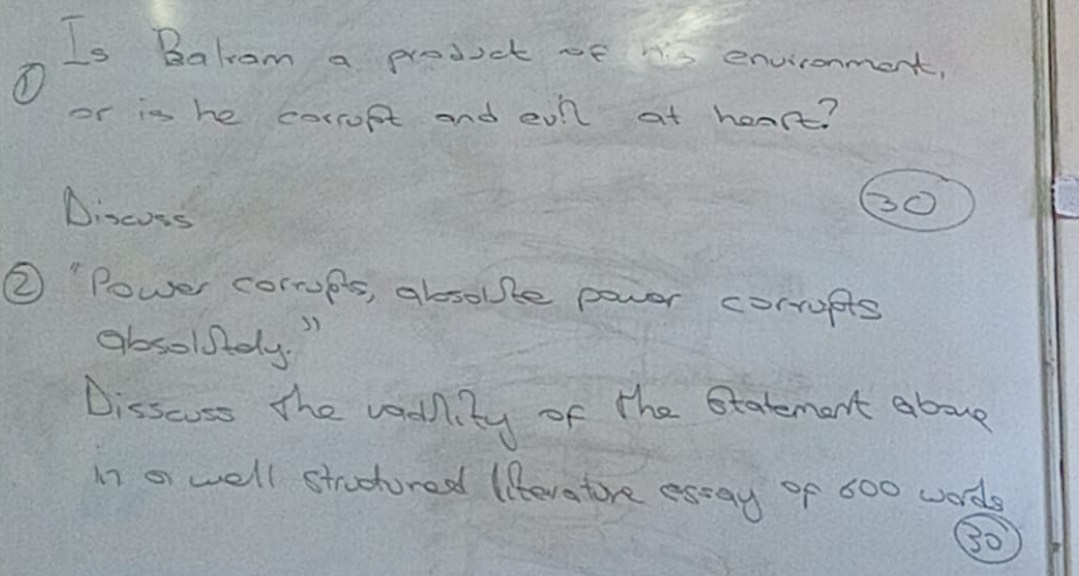 ① Is Balram a product of his environment,
or is he corrupt and evil at heart?
Discuss
30
② "Power corrupts, absolute power corrupts
absolutely."
Disscuss the vadility of the Statement above
in a well structured literature essay of 600 words
30